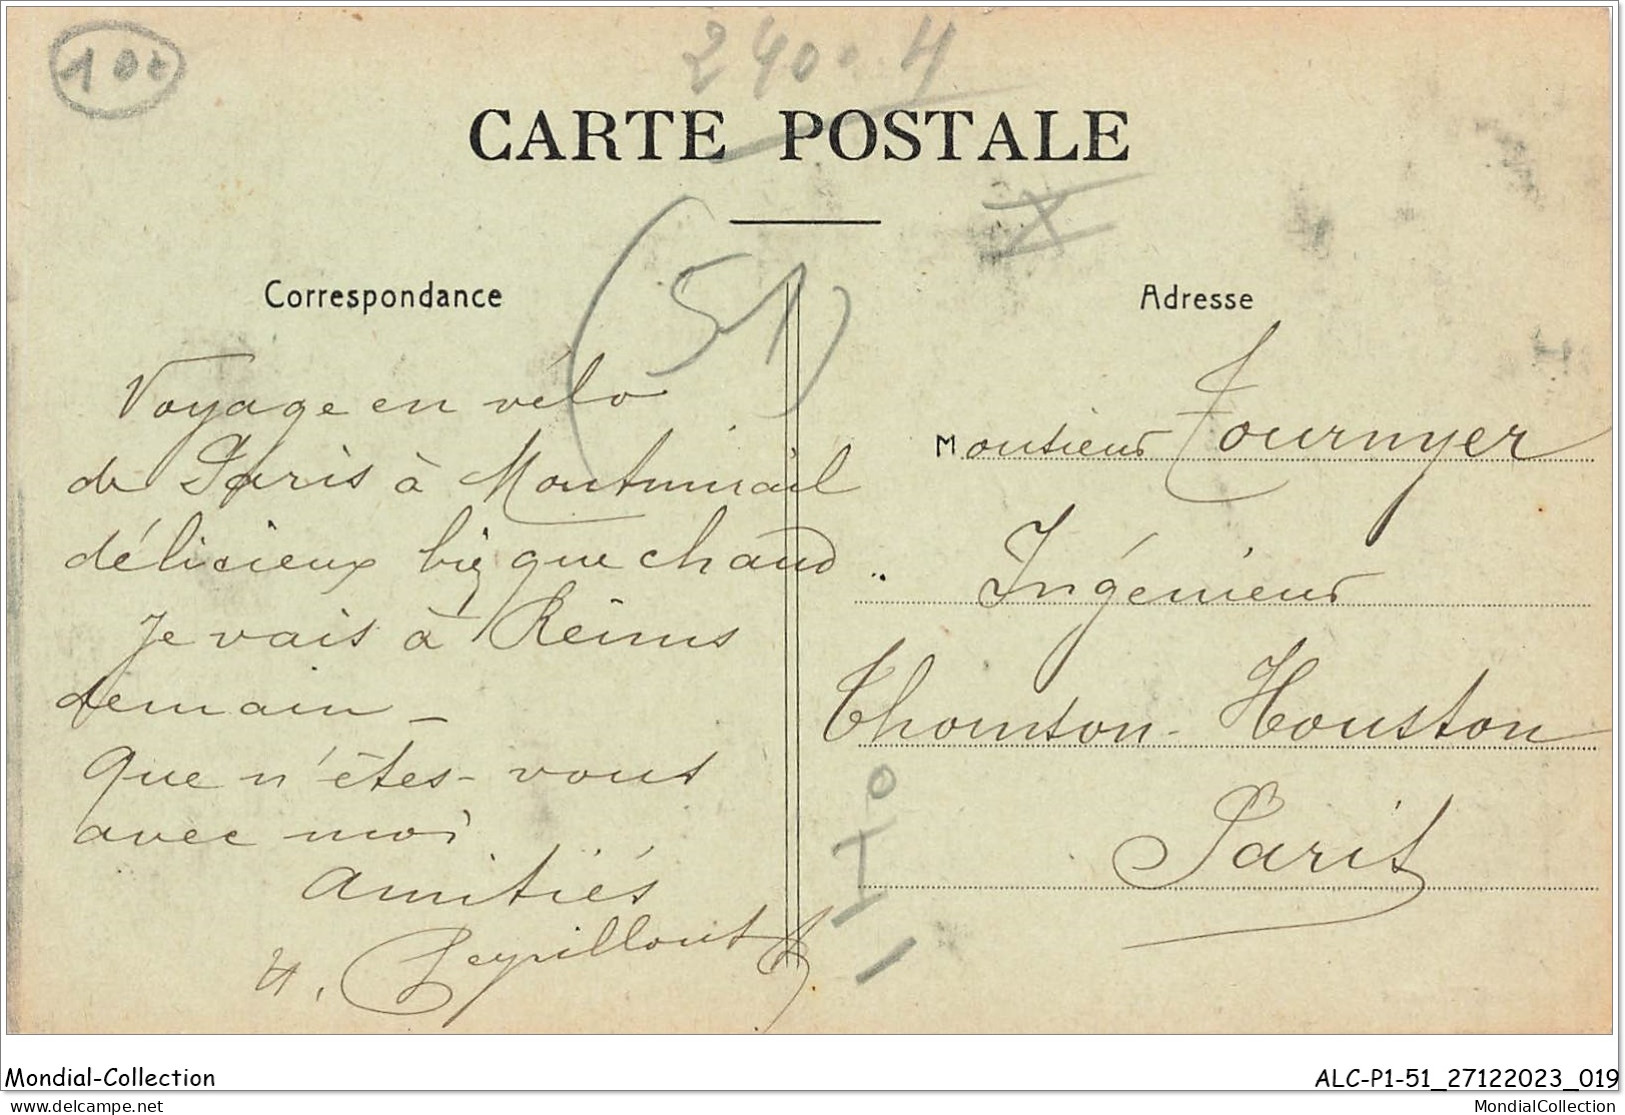 10€
2400 H
CARTE POSTALE
(51)
Correspondance
Voyage en vélo
de Paris à Montmirail
délicieux bien que chaud ..
Je vais à Reims
demain _
Que n'êtes-vous
avec moi
Amitiés
H.
Adresse
Monsieur Tournyer
Ingénieur
Thomson-Houston
Paris
Mondial-Collection
ALC-P1-51_27122023_019
www.delcampe.net
MondialCollection